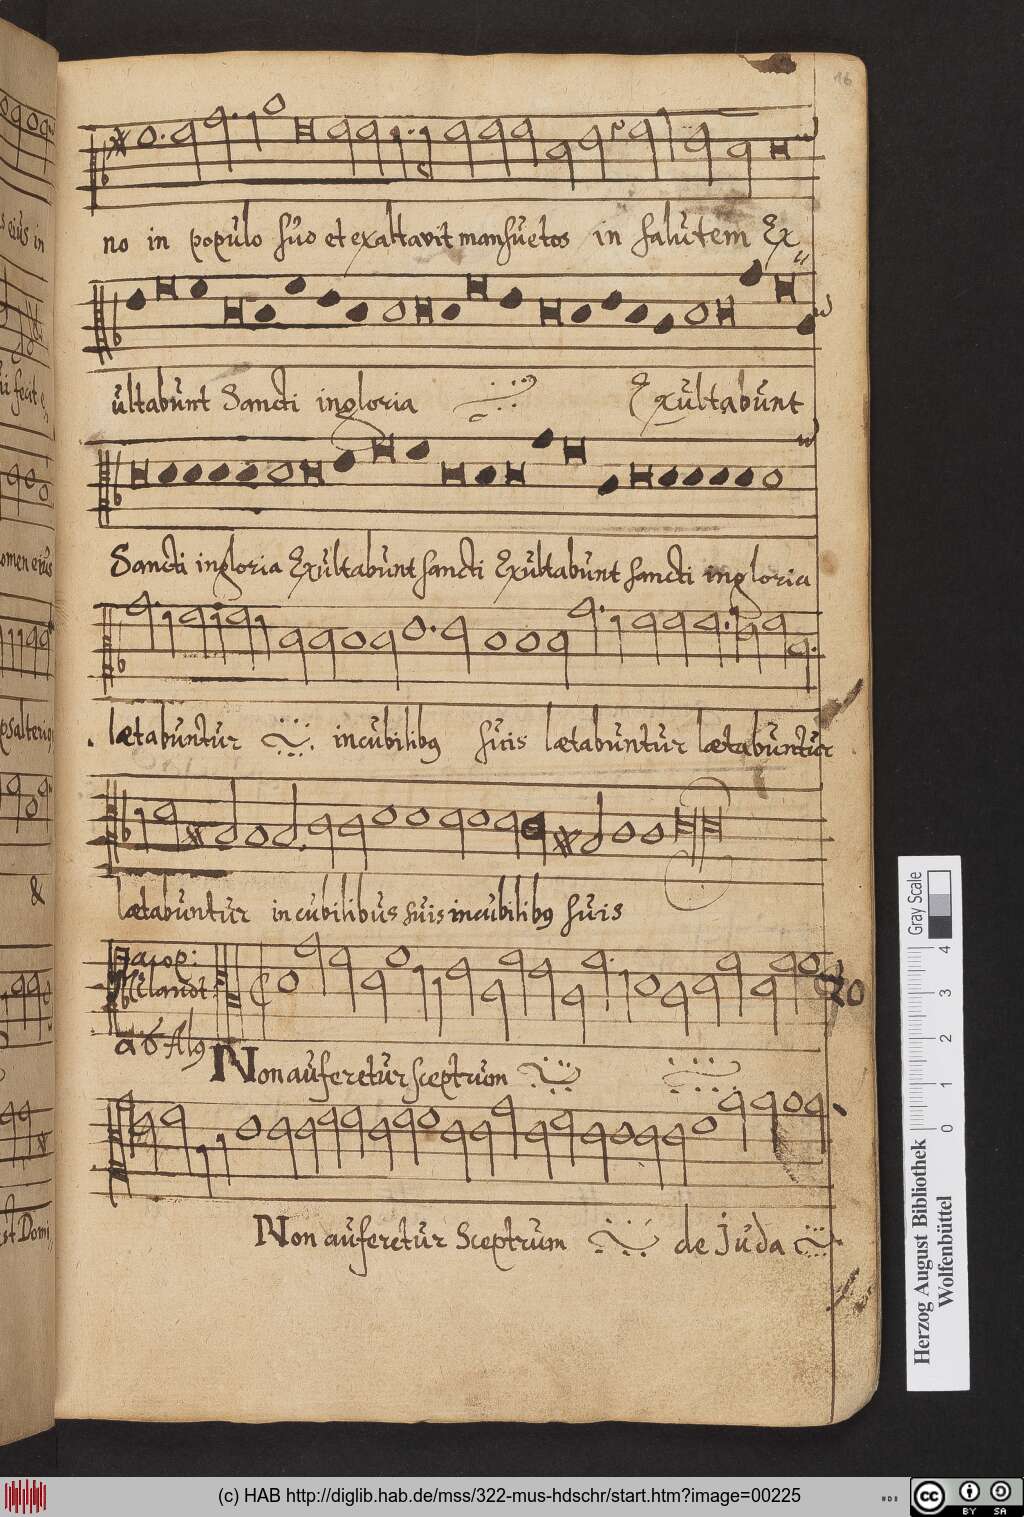 16
no in populo suo et exaltavit mansuetos in salutem Ex
ultabunt Sancti in gloria Exultabunt
Sancti in gloria Exultabunt sancti Exultabunt sancti in gloria
lætabuntur in cubilibꝰ suis lætabuntur lætabuntur
lætabuntur in cubilibus suis in cubilibꝰ suis
Jacop:
Hilandt
20
a 6 Alꝰ
Non auferetur sceptrum
Non auferetur Sceptrum de Juda
s eius in
ui fecit e
omen eius
psalterio
&
st Domi
Gray Scale
0 1 2 3 4
Herzog August Bibliothek
Wolfenbüttel
(c) HAB http://diglib.hab.de/mss/322-mus-hdschr/start.htm?image=00225
cc BY SA